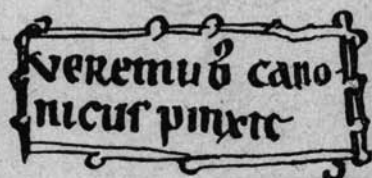 veremudꝰ cano-
nicuſ pinxit